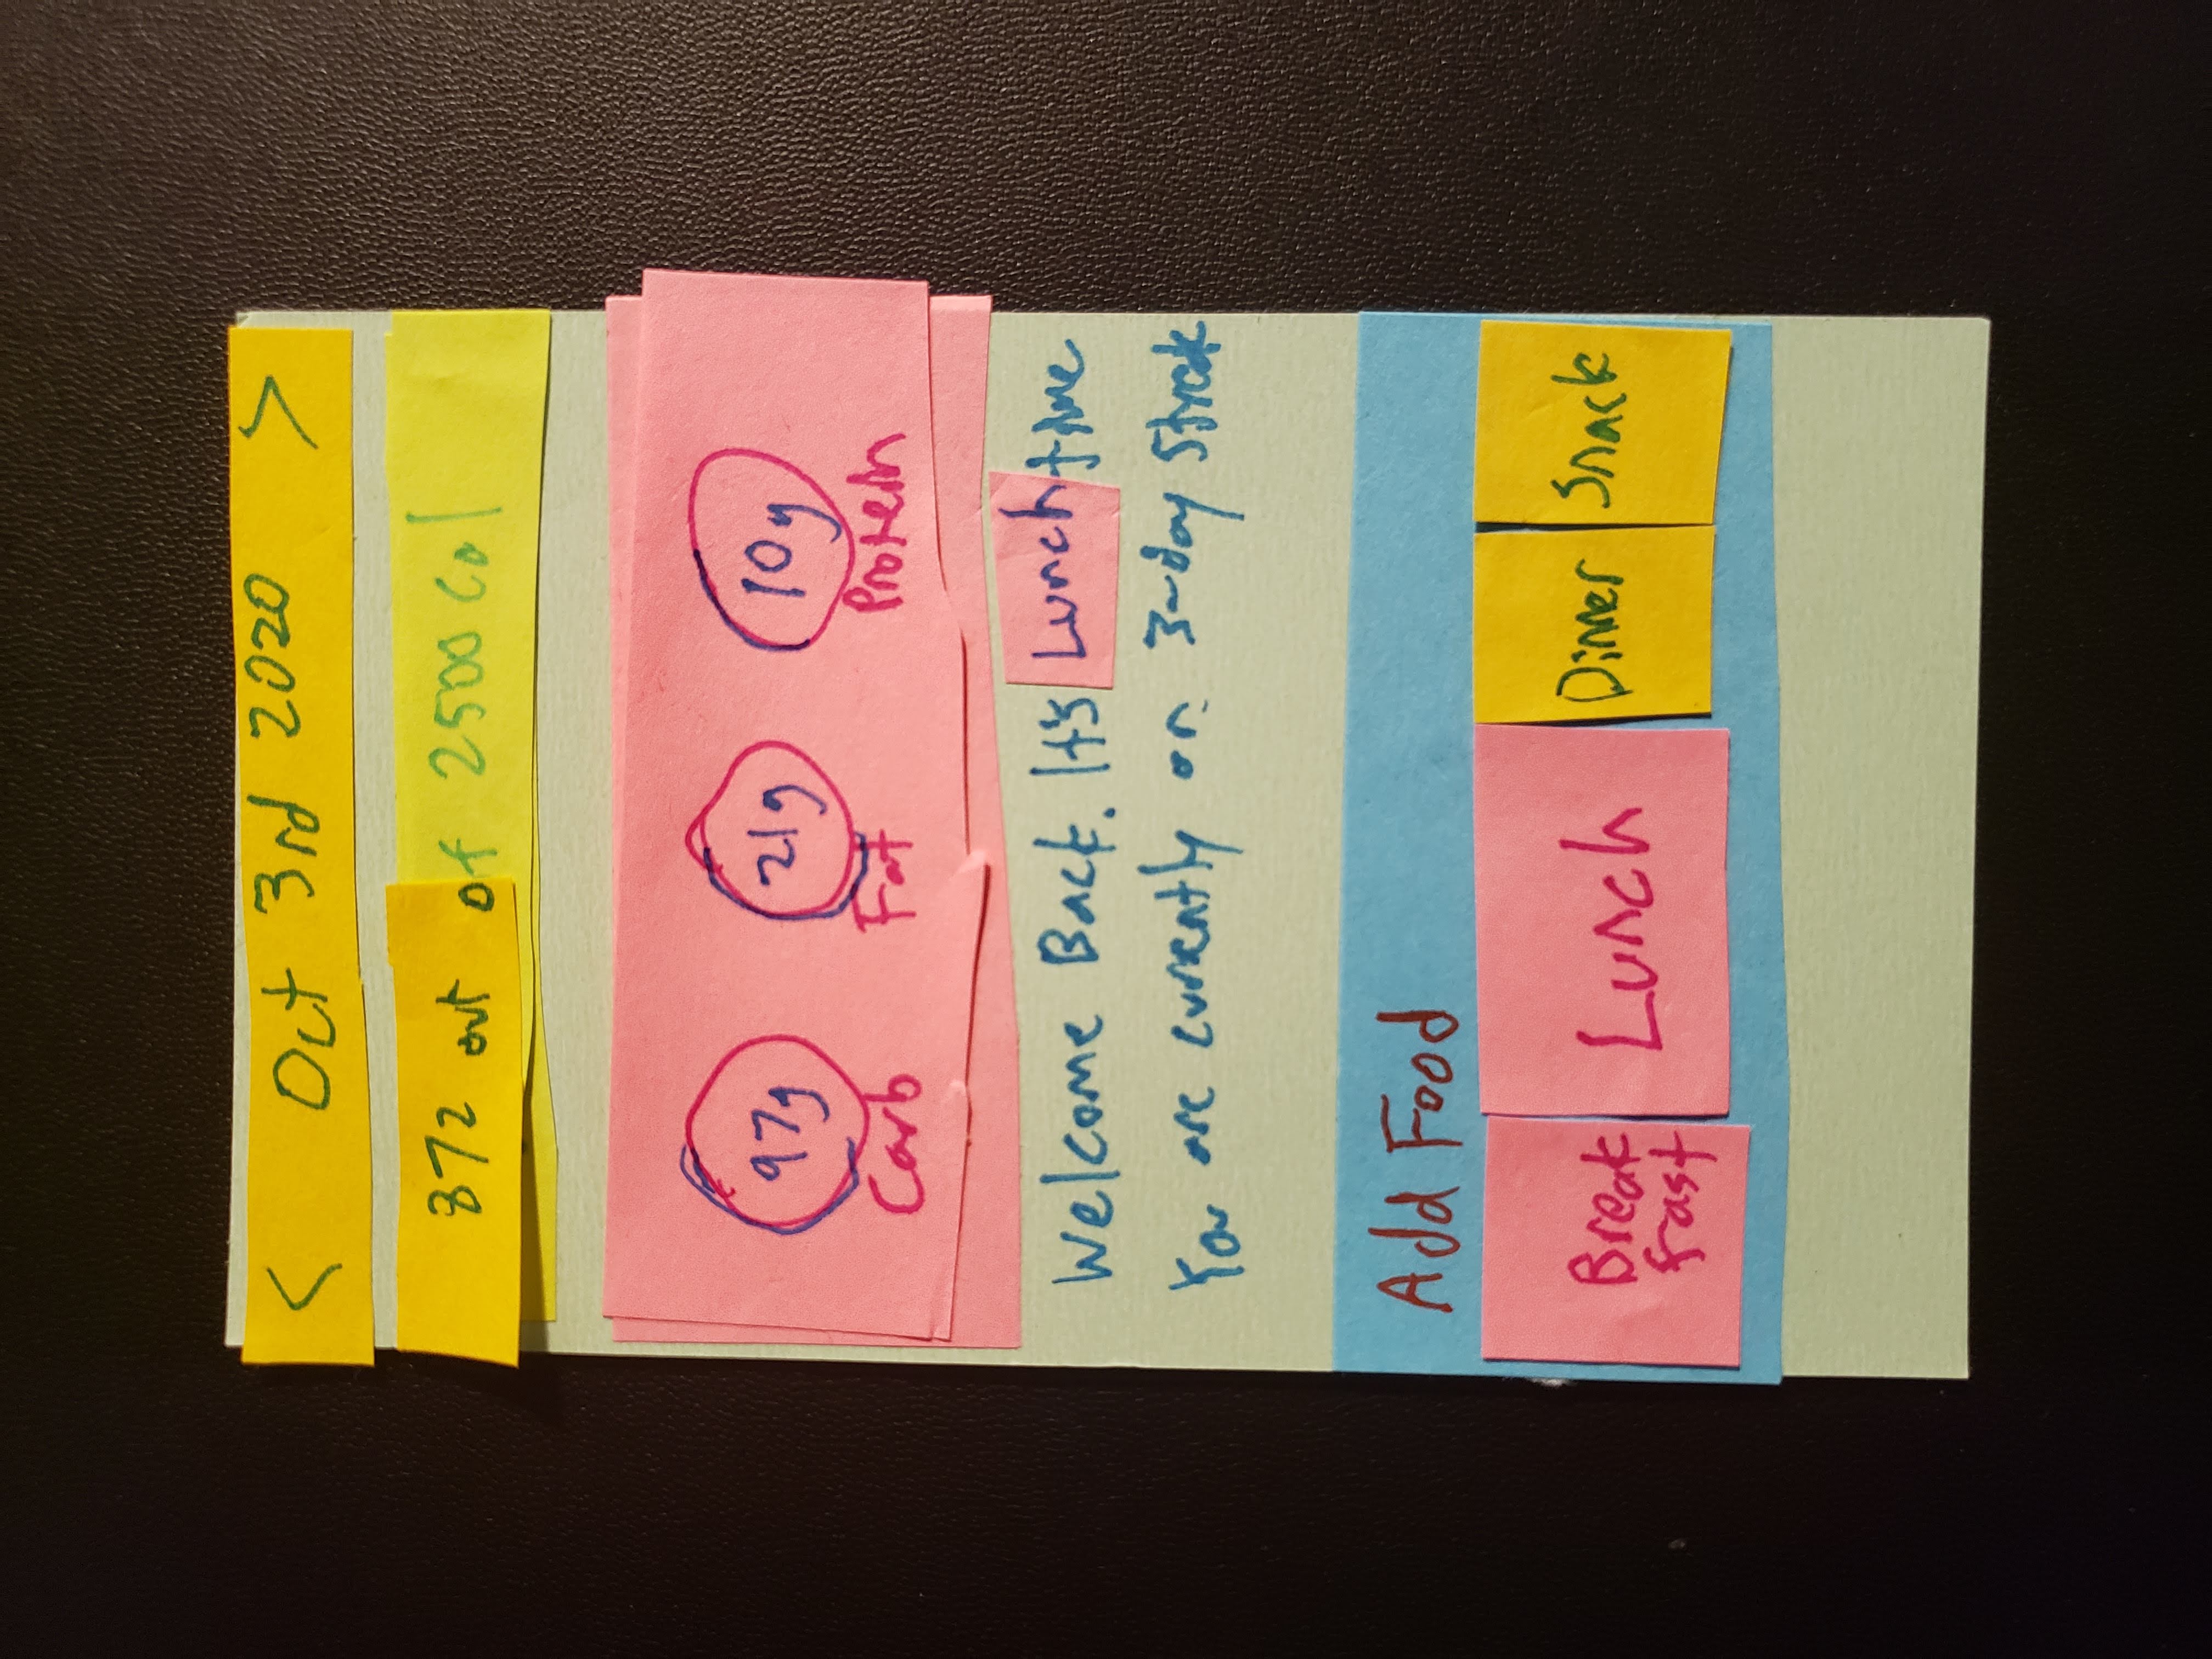 < Oct 3rd 2020 >
872 out of 2500 Cal
97g 21g 10g
Carb Fat Protein
Welcome Back. It's Lunch time
You are currently on 3-day Streak
Add Food
Break
fast
Lunch
Dinner
Snack